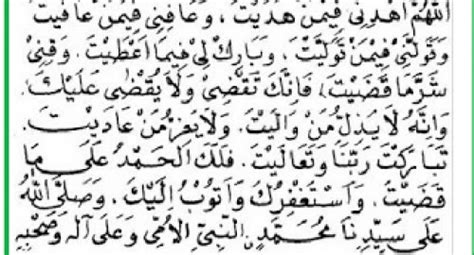 اَللّٰهُمَّ اهْدِنِيْ فِيْمَنْ هَدَيْتَ، وَعَافِنِيْ فِيْمَنْ عَافَيْتَ
وَتَوَلَّنِيْ فِيْمَنْ تَوَلَّيْتَ، وَبَارِكْ لِيْ فِيْمَا اَعْطَيْتَ. وَقِنِيْ
شَرَّمَا قَضَيْتَ، فَاِنَّكَ تَقْضِيْ وَلَا يُقْضٰى عَلَيْكَ.
وَاِنَّهُ لَا يَذِلُّ مَنْ وَالَيْتَ. وَلَا يَعِزُّ مَنْ عَادَيْتَ.
تَبَارَكْتَ رَبَّنَا وَتَعَالَيْتَ. فَلَكَ الْحَمْدُ عَلٰى مَا
قَضَيْتَ. وَاَسْتَغْفِرُكَ وَاَتُوْبُ اِلَيْكَ. وَصَلَّى اللّٰهُ
عَلٰى سَيِّدِنَا مُحَمَّدٍ النَّبِيِّ الْاُمِّيِّ وَعَلٰى آلِهِ وَصَحْبِهِ